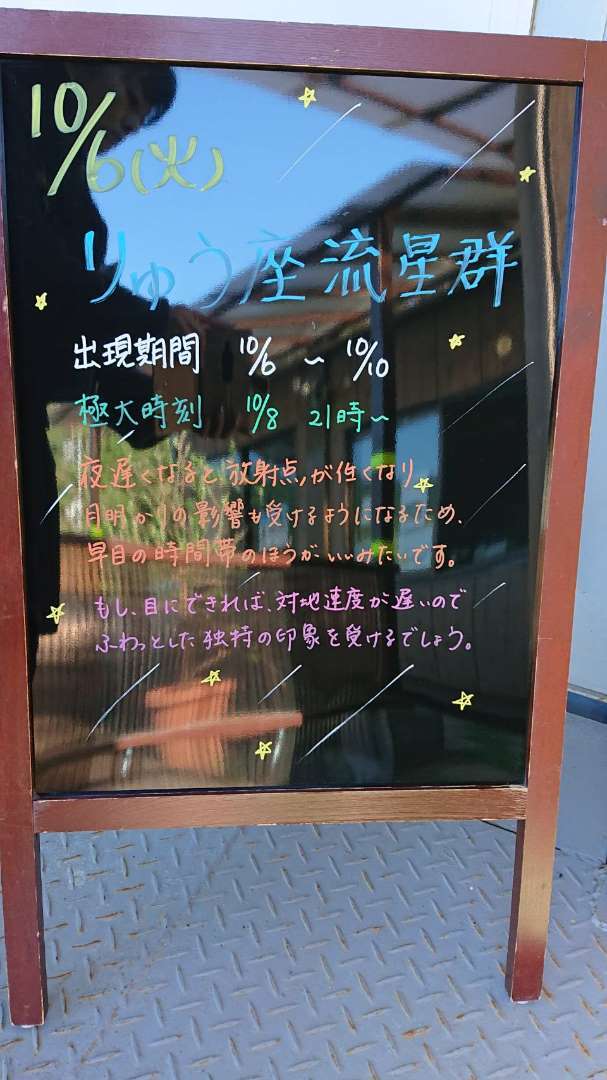 10/6(火)
りゅう座流星群
出現期間 10/6 ~ 10/10
極大時刻 10/8 21時~
夜遅くなると放射点が低くなり
月明かりの影響も受けるようになるため、
早目の時間帯のほうがいいみたいです。
もし、目にできれば、対地速度が遅いので
ふわっとした独特の印象を受けるでしょう。